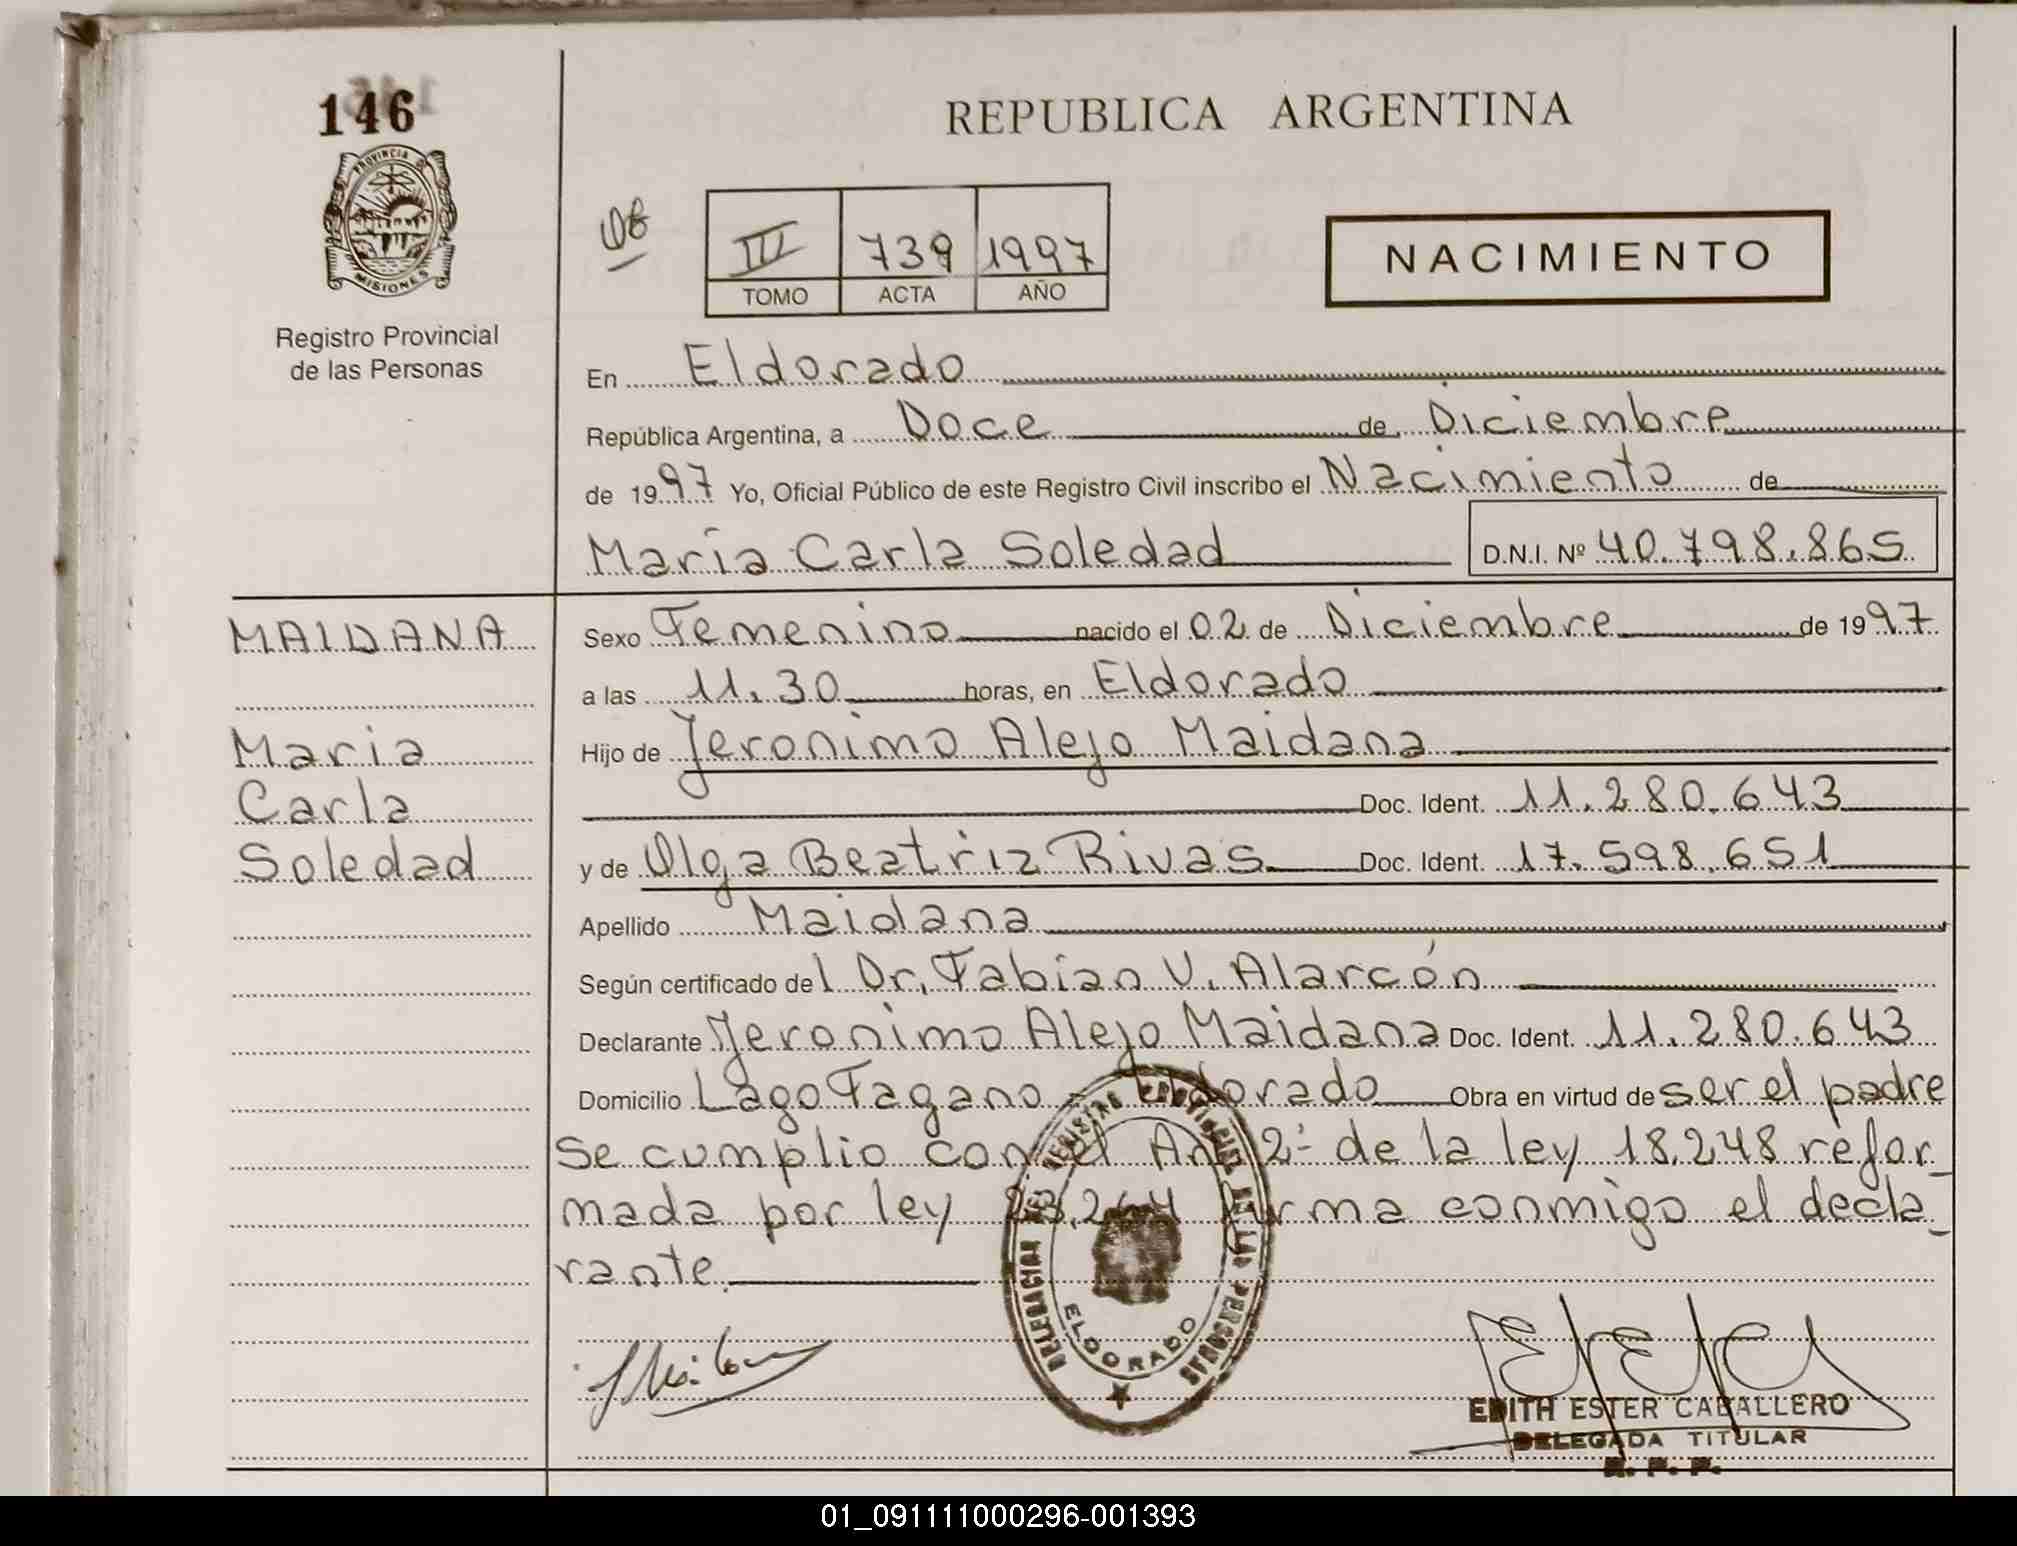 146
REPUBLICA ARGENTINA
PROVINCIA DE
MISIONES
Registro Provincial
de las Personas
III 739 1997
TOMO ACTA AÑO
NACIMIENTO
En Eldorado
República Argentina, a Doce de Diciembre
de 1997 Yo, Oficial Público de este Registro Civil inscribo el Nacimiento de
María Carla Soledad D.N.I. Nº 40.798.865
MAIDANA
Maria
Carla
Soledad
Sexo Femenino nacido el 02 de Diciembre de 1997
a las 11.30 horas, en Eldorado
Hijo de Jeronimo Alejo Maidana
Doc. Ident. 11.280.643
y de Olga Beatriz Rivas Doc. Ident. 17.598.651
Apellido Maidana
Según certificado del Dr. Fabian V. Alarcón
Declarante Jeronimo Alejo Maidana Doc. Ident. 11.280.643
Domicilio Lago Fagano - Eldorado Obra en virtud de ser el padre
se cumplio con el Art 2º de la ley 18.248 refor_
mada por ley 23.264 firma conmigo el decla_
rante.
DELEGACION DEL REGISTRO PROVINCIAL DE LAS PERSONAS
ELDORADO
EDITH ESTER CABALLERO
DELEGADA TITULAR
R. P. P.
01_091111000296-001393